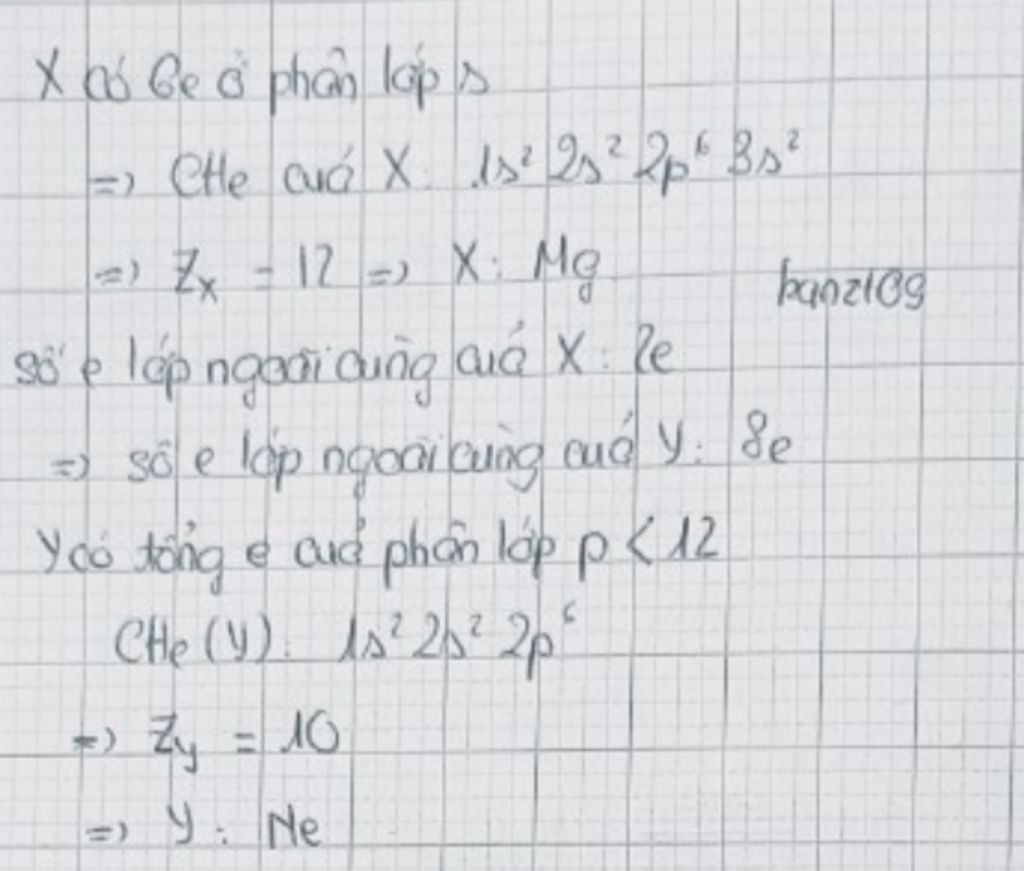 X có 6e ở phân lớp s
=> CHe cuả X: 1s² 2s² 2p⁶ 3s²
=> Zx = 12 => X: Mg
banz109
số e lớp ngoài cùng cuả X: 2e
=> số e lớp ngoài cùng cuả Y: 8e
Y có tổng e cuả phân lớp p < 12
CHe (Y): 1s² 2s² 2p⁶
=> Zy = 10
=> Y: Ne